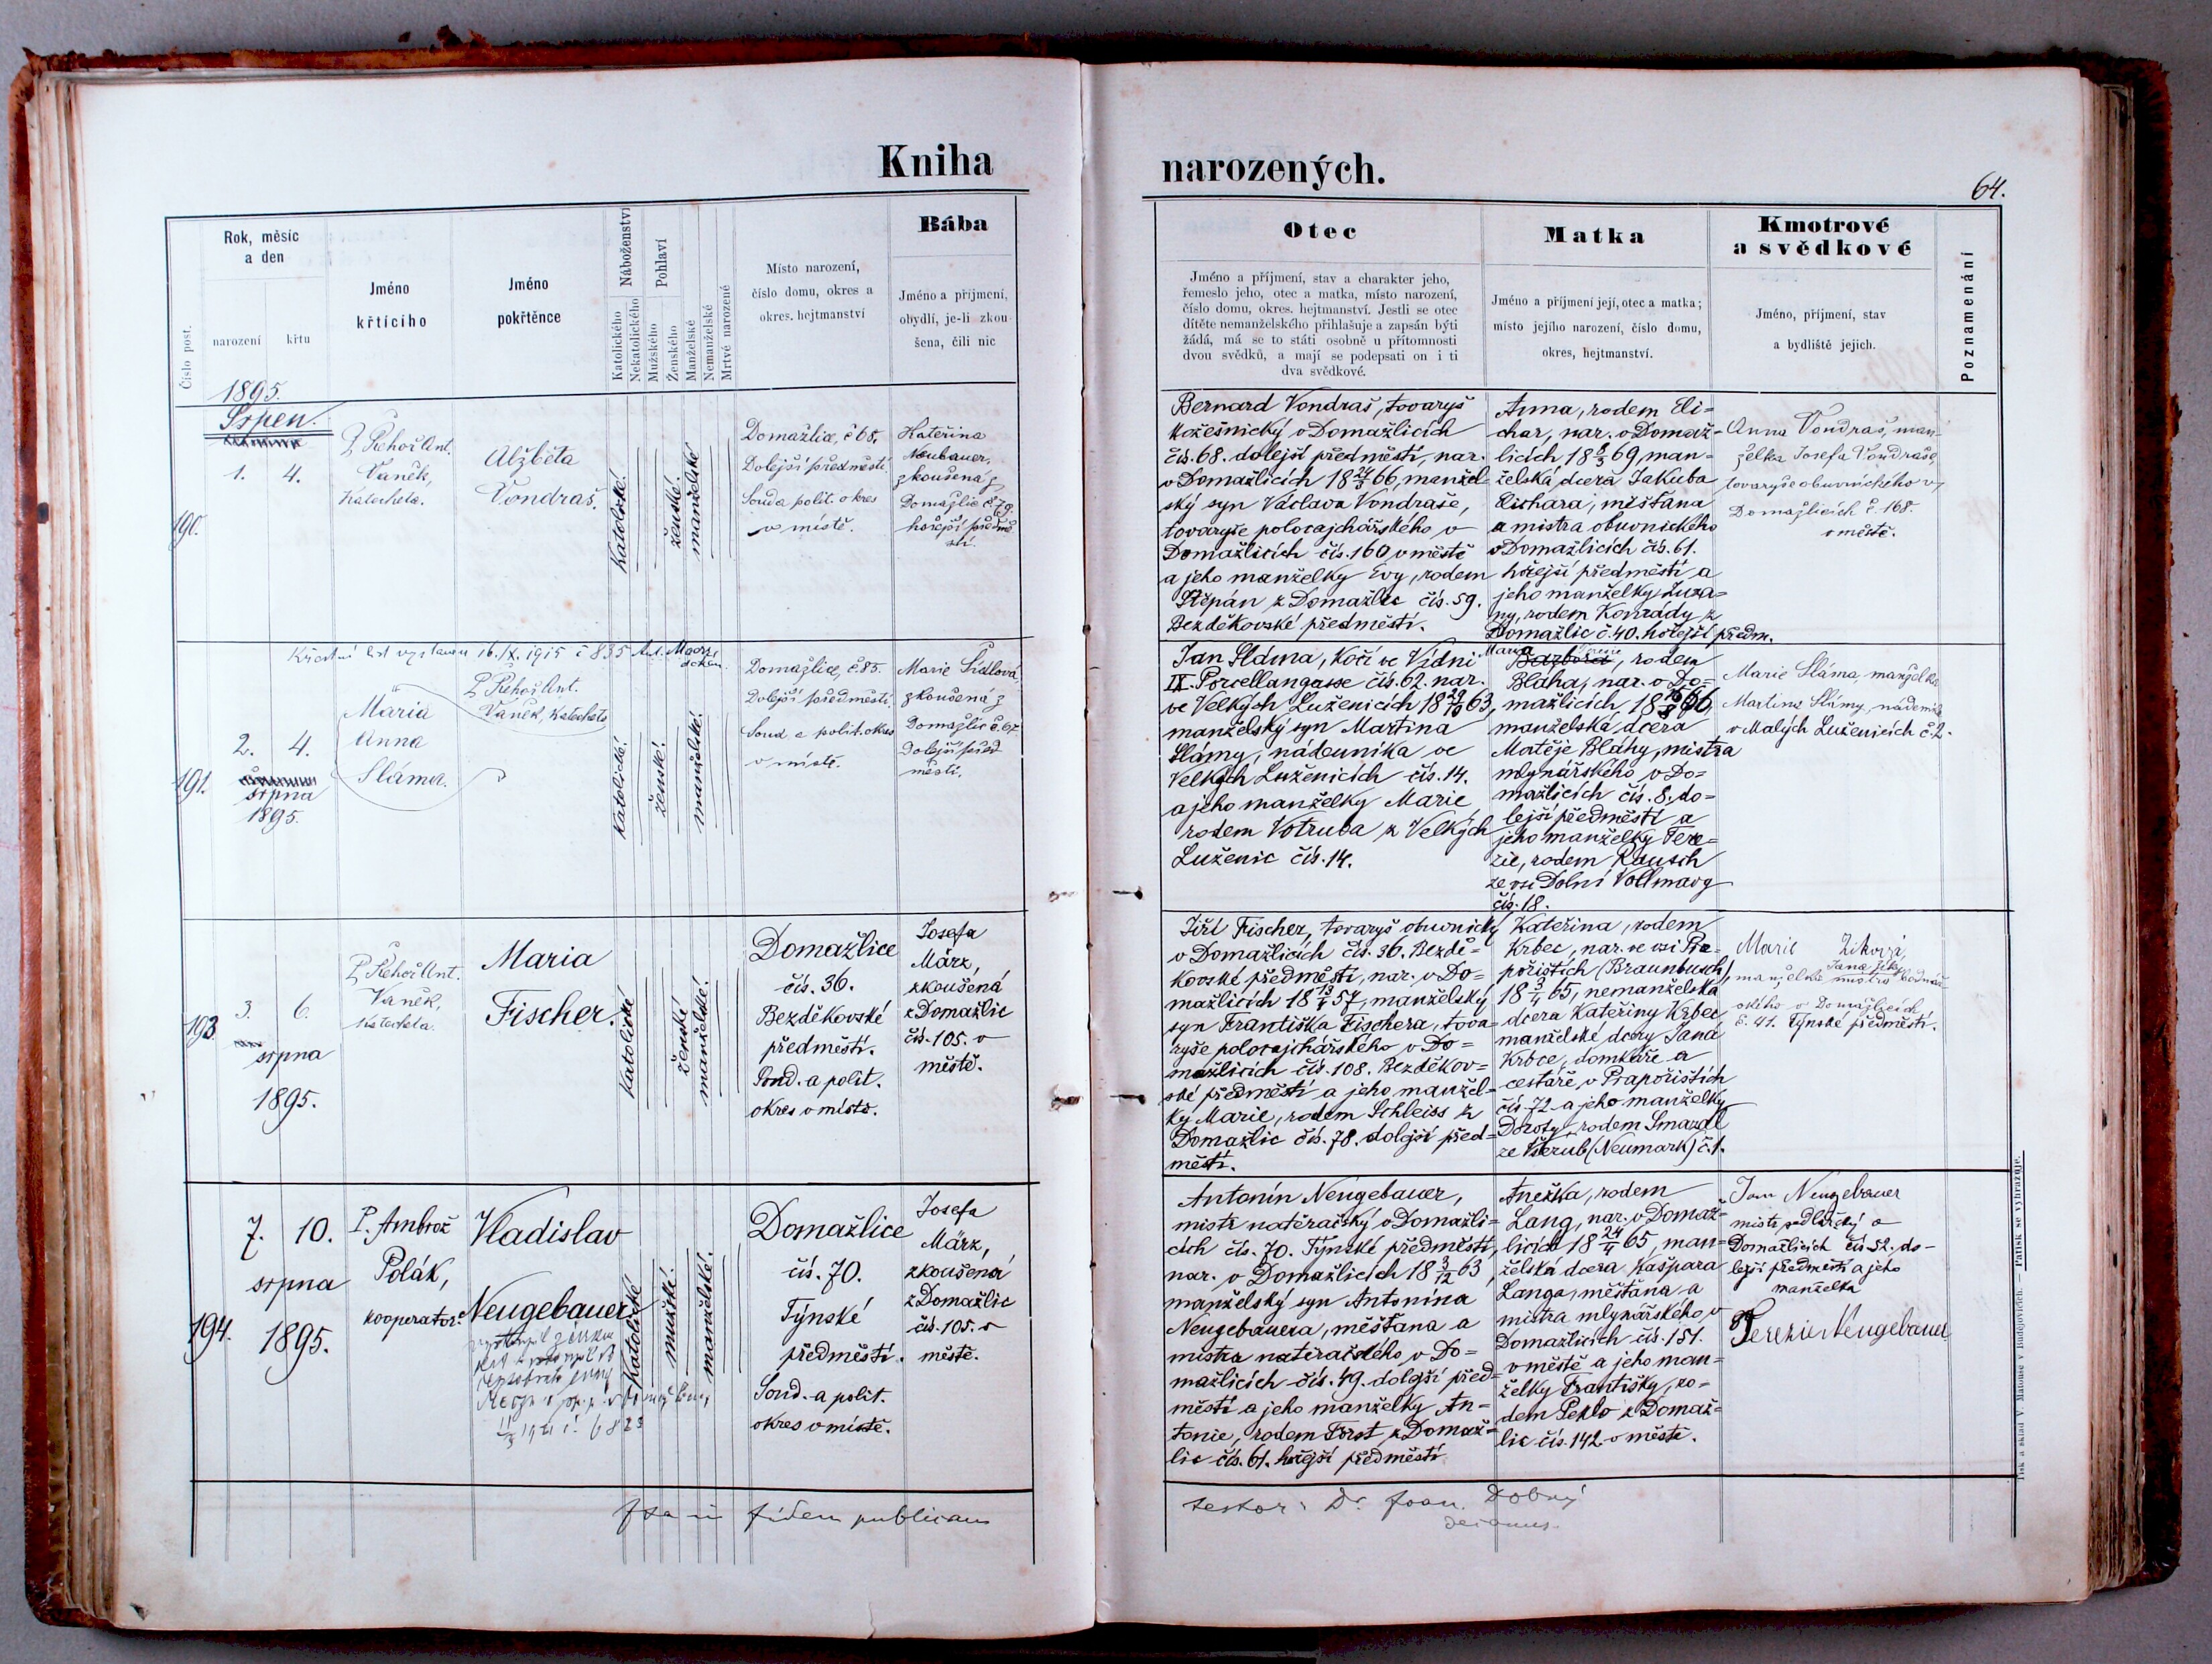 Kniha
narozených.
64.
Číslo post.
Rok, měsíc
a den
narození
křtu
Jméno
křtícího
Jméno
pokřtěnce
Náboženství
Katolického
Nekatolického
Pohlaví
Mužského
Ženského
Manželské
Nemanželské
Mrtvé narozené
Místo narození,
číslo domu, okres a
okres. hejtmanství
Bába
Jméno a příjmení,
obydlí, je-li zkou
šena, čili nic
Otec
Jméno a příjmení, stav a charakter jeho,
řemeslo jeho, otec a matka, místo narození,
číslo domu, okres. hejtmanství. Jestli se otec
dítěte nemanželského přihlašuje a zapsán býti
žádá, má se to státi osobně u přítomnosti
dvou svědků, a mají se podepsati on i ti
dva svědkové.
Matka
Jméno a příjmení její, otec a matka;
místo jejího narození, číslo domu,
okres, hejtmanství.
Kmotrové
a svědkové
Jméno, příjmení, stav
a bydliště jejich.
Poznamenání
1895.
Srpen.
190.
1. 4.
P. Řehoř Ant.
Vaněk,
Katecheta.
Alžběta
Vondraš.
Katolické!
ženské!
manželské
Domažlice, č 68,
Dolejší předměstí.
Souda polit. okres
v místě.
Kateřina
Neubauer,
zkoušená z
Domažlic č. 79.
hořejší předmě
stí.
Bernard Vondraš, tovaryš
kožešnický v Domažlicích
čís. 68. dolejší předměstí, nar.
v Domažlicích 18 66, manžel-
ský syn Václava Vondraše,
tovaryše polocajchářského v
Domažlicích čís. 160 v městě
a jeho manželky Evy, rodem
Štěpán z Domažlic čís. 59.
Bezděkovské předměstí.
Anna, rodem Eli=
char, nar. v Domaž=
licích 18 69, man=
želská dcera Jakuba
Elichara, měšťana
a mistra obuvnického
v Domažlicích čís. 61.
hořejší předměstí a
jeho manželky Zuza=
ny, rodem Konrády z
Domažlic č. 40. hořejší předm.
Anna Vondraš, man-
želka Josefa Vondraše,
tovaryše obuvnického v
Domažlicích č. 168.
v městě.
Křestní list vystaven 16./IX. 1915 č 835
děkan.
191.
2. 4.
srpna
1895.
P. Řehoř Ant.
Vaněk, Katecheta
Maria
Anna
Sláma.
Katolické!
ženské!
manželské!
Domažlice, č. 85.
Dolejší předměstí.
Soud a polit. okres
v místě.
Marie Šidlová
zkoušená z
Domažlic č. 67.
Dolejší před
městí.
Jan Sláma, kočí ve Vídni
IX. Porcellangasse čís. 62. nar.
ve Velkých Luženicích 18 63,
manželský syn Martina
Slámy, nádenníka ve
Velkých Luženicích čís. 14.
a jeho manželky Marie,
rodem Votruba z Velkých
Luženic čís. 14.
Maria Terezie
Barbora, rodem
Bláha, nar. v Do=
mažlicích 18 66
manželská dcera
Matěje Bláhy, mistra
mlynářského v Do=
mažlicích čís. 8. do=
lejší předměstí a
jeho manželky Tere=
zie, rodem Rausch
ze vsi Dolní Vollmavy
čís. 18.
Marie Sláma, manželka
Martina Slámy, nádeníka
v Malých Luženicích č. 2.
193.
3. 6.
srpna
1895.
P. Řehoř Ant.
Vaněk,
Katecheta.
Maria
Fischer.
Katolické
ženské!
manželské!
Domažlice
čís. 36.
Bezděkovské
předměstí.
Soud. a polit.
okres v místě.
Josefa
März,
zkoušená
z Domažlic
čís. 105. v
městě.
Jiří Fischer, tovaryš obuvnický
v Domažlicích čís. 36. Bezdě-
kovské předměstí, nar. v Do=
mažlicích 18 57, manželský
syn Františka Fischera, tova=
ryše polocajchářského v Do=
mažlicích čís. 108. Bezděkov=
ské předměstí a jeho manžel=
ky Marie, rodem Schleiss z
Domažlic čís. 78. dolejší před=
městí.
Kateřina, rodem
Krbec, nar. ve vsi Pra-
pořištích (Braunbusch),
18 3/4 65, nemanželská
dcera Kateřiny Krbec
manželské dcery Jana
Krbce, domkáře a
cestáře v Prapořištích
čís. 72 a jeho manželky
Doroty, rodem Smazal
ze Všerub (Neumark) č. 1.
Marie Ziková,
manželka Jana Ziky
mistra bednář
ského v Domažlicích
č. 41. Týnské předměstí.
194.
7. 10.
srpna
1895.
P. Ambrož
Polák,
kooperator.
Vladislav
Neugebauer
Katolické
mužské!
manželské!
Domažlice
čís. 70.
Týnské
předměstí.
Soud. a polit.
okres v místě.
Josefa
März,
zkoušená
z Domažlic
čís. 105. v
městě.
Antonín Neugebauer,
mistr natěračský v Domažli=
cích čís. 70. Týnské předměstí,
nar. v Domažlicích 18 3/12 63,
manželský syn Antonína
Neugebauera, měšťana a
mistra natěračského v Do=
mažlicích čís. 49. dolejší před=
městí a jeho manželky An=
tonie, rodem Forst z Domaž=
lic čís. 61. hořejší předměstí
Anežka, rodem
Lang, nar. v Domaž=
licích 18 24/4 65, man=
želská dcera Kašpara
Langa, měšťana a
mistra mlynářského v
Domažlicích čís. 151.
v městě a jeho man=
želky Františky, ro=
dem Peklo z Domaž=
lic čís. 142 v městě.
Jan Neugebauer
mistr sedlářský v
Domažlicích čís 52. do-
lejší předměstí a jeho
manželka
Terezie Neugebauer
Ita in fidem publicam
testor: Dr. Joan. Dobrý
decanus.
Tisk a sklad V. Matouše v Budějovicích. — Patisk se vyhražuje.